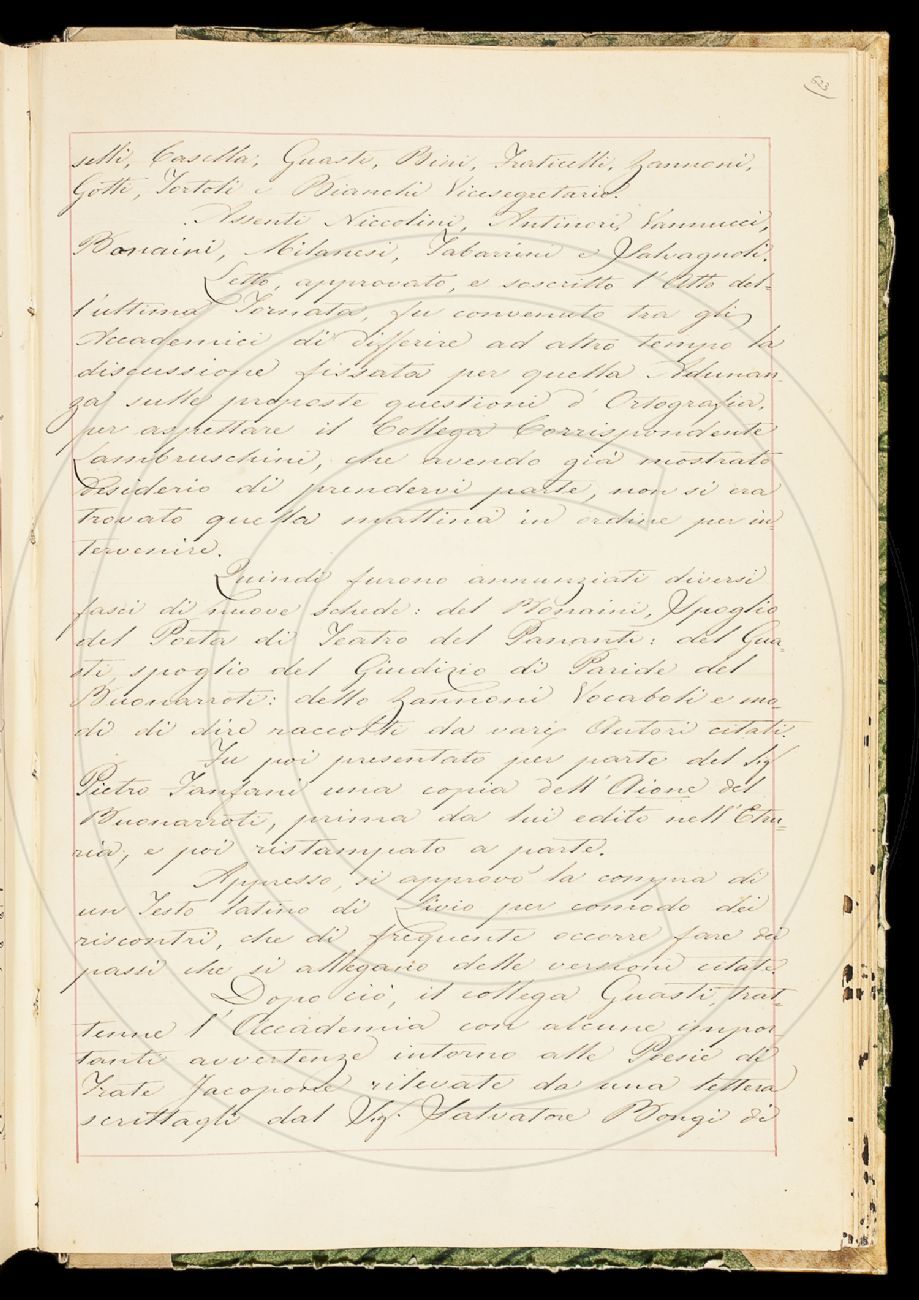 623
selli, Casella, Guasti, Bini, Fraticelli, Zannoni,
Gotti, Tortoli e Bianchi Vicesegretario.
Assenti Niccolini, Antinori, Vannucci,
Bonaini, Milanesi, Tabarrini e Salvagnoli.
Letto, approvato, e soscritto l'Atto del=
l'ultima Tornata, fu convenuto tra gli
Accademici di differire ad altro tempo la
discussione fissata per quella Adunan=
za sulle proposte questioni d'Ortografia,
per aspettare il Collega Corrispondente
Lambruschini, che avendo già mostrato
desiderio di prendervi parte, non si era
trovato quella mattina in ordine per in=
tervenire.
Quindi furono annunziati diversi
fasci di nuove schede: del Bonaini, Spoglio
del Poeta di Teatro del Pananti: del Gua=
sti, spoglio del Giudizio di Paride del
Buonarroti: dello Zannoni Vocaboli e mo=
di di dire raccolti da varj Autori citati.
Fu poi presentato per parte del Sig.
Pietro Fanfani una copia dell'Aione del
Buonarroti, prima da lui edito nell'Etru=
ria, e poi ristampato a parte.
Appresso, si approvò la compra di
un Testo latino di Livio per comodo dei
riscontri, che di frequente occorre fare di
passi che si allegano delle versioni citate.
Dopo ciò, il collega Guasti, trat
tenne l'Accademia con alcune impor
tanti avvertenze intorno alle Poesie di
Frate Jacopone rilevate da una lettera
scrittagli dal Sig. Salvatore Bongi di